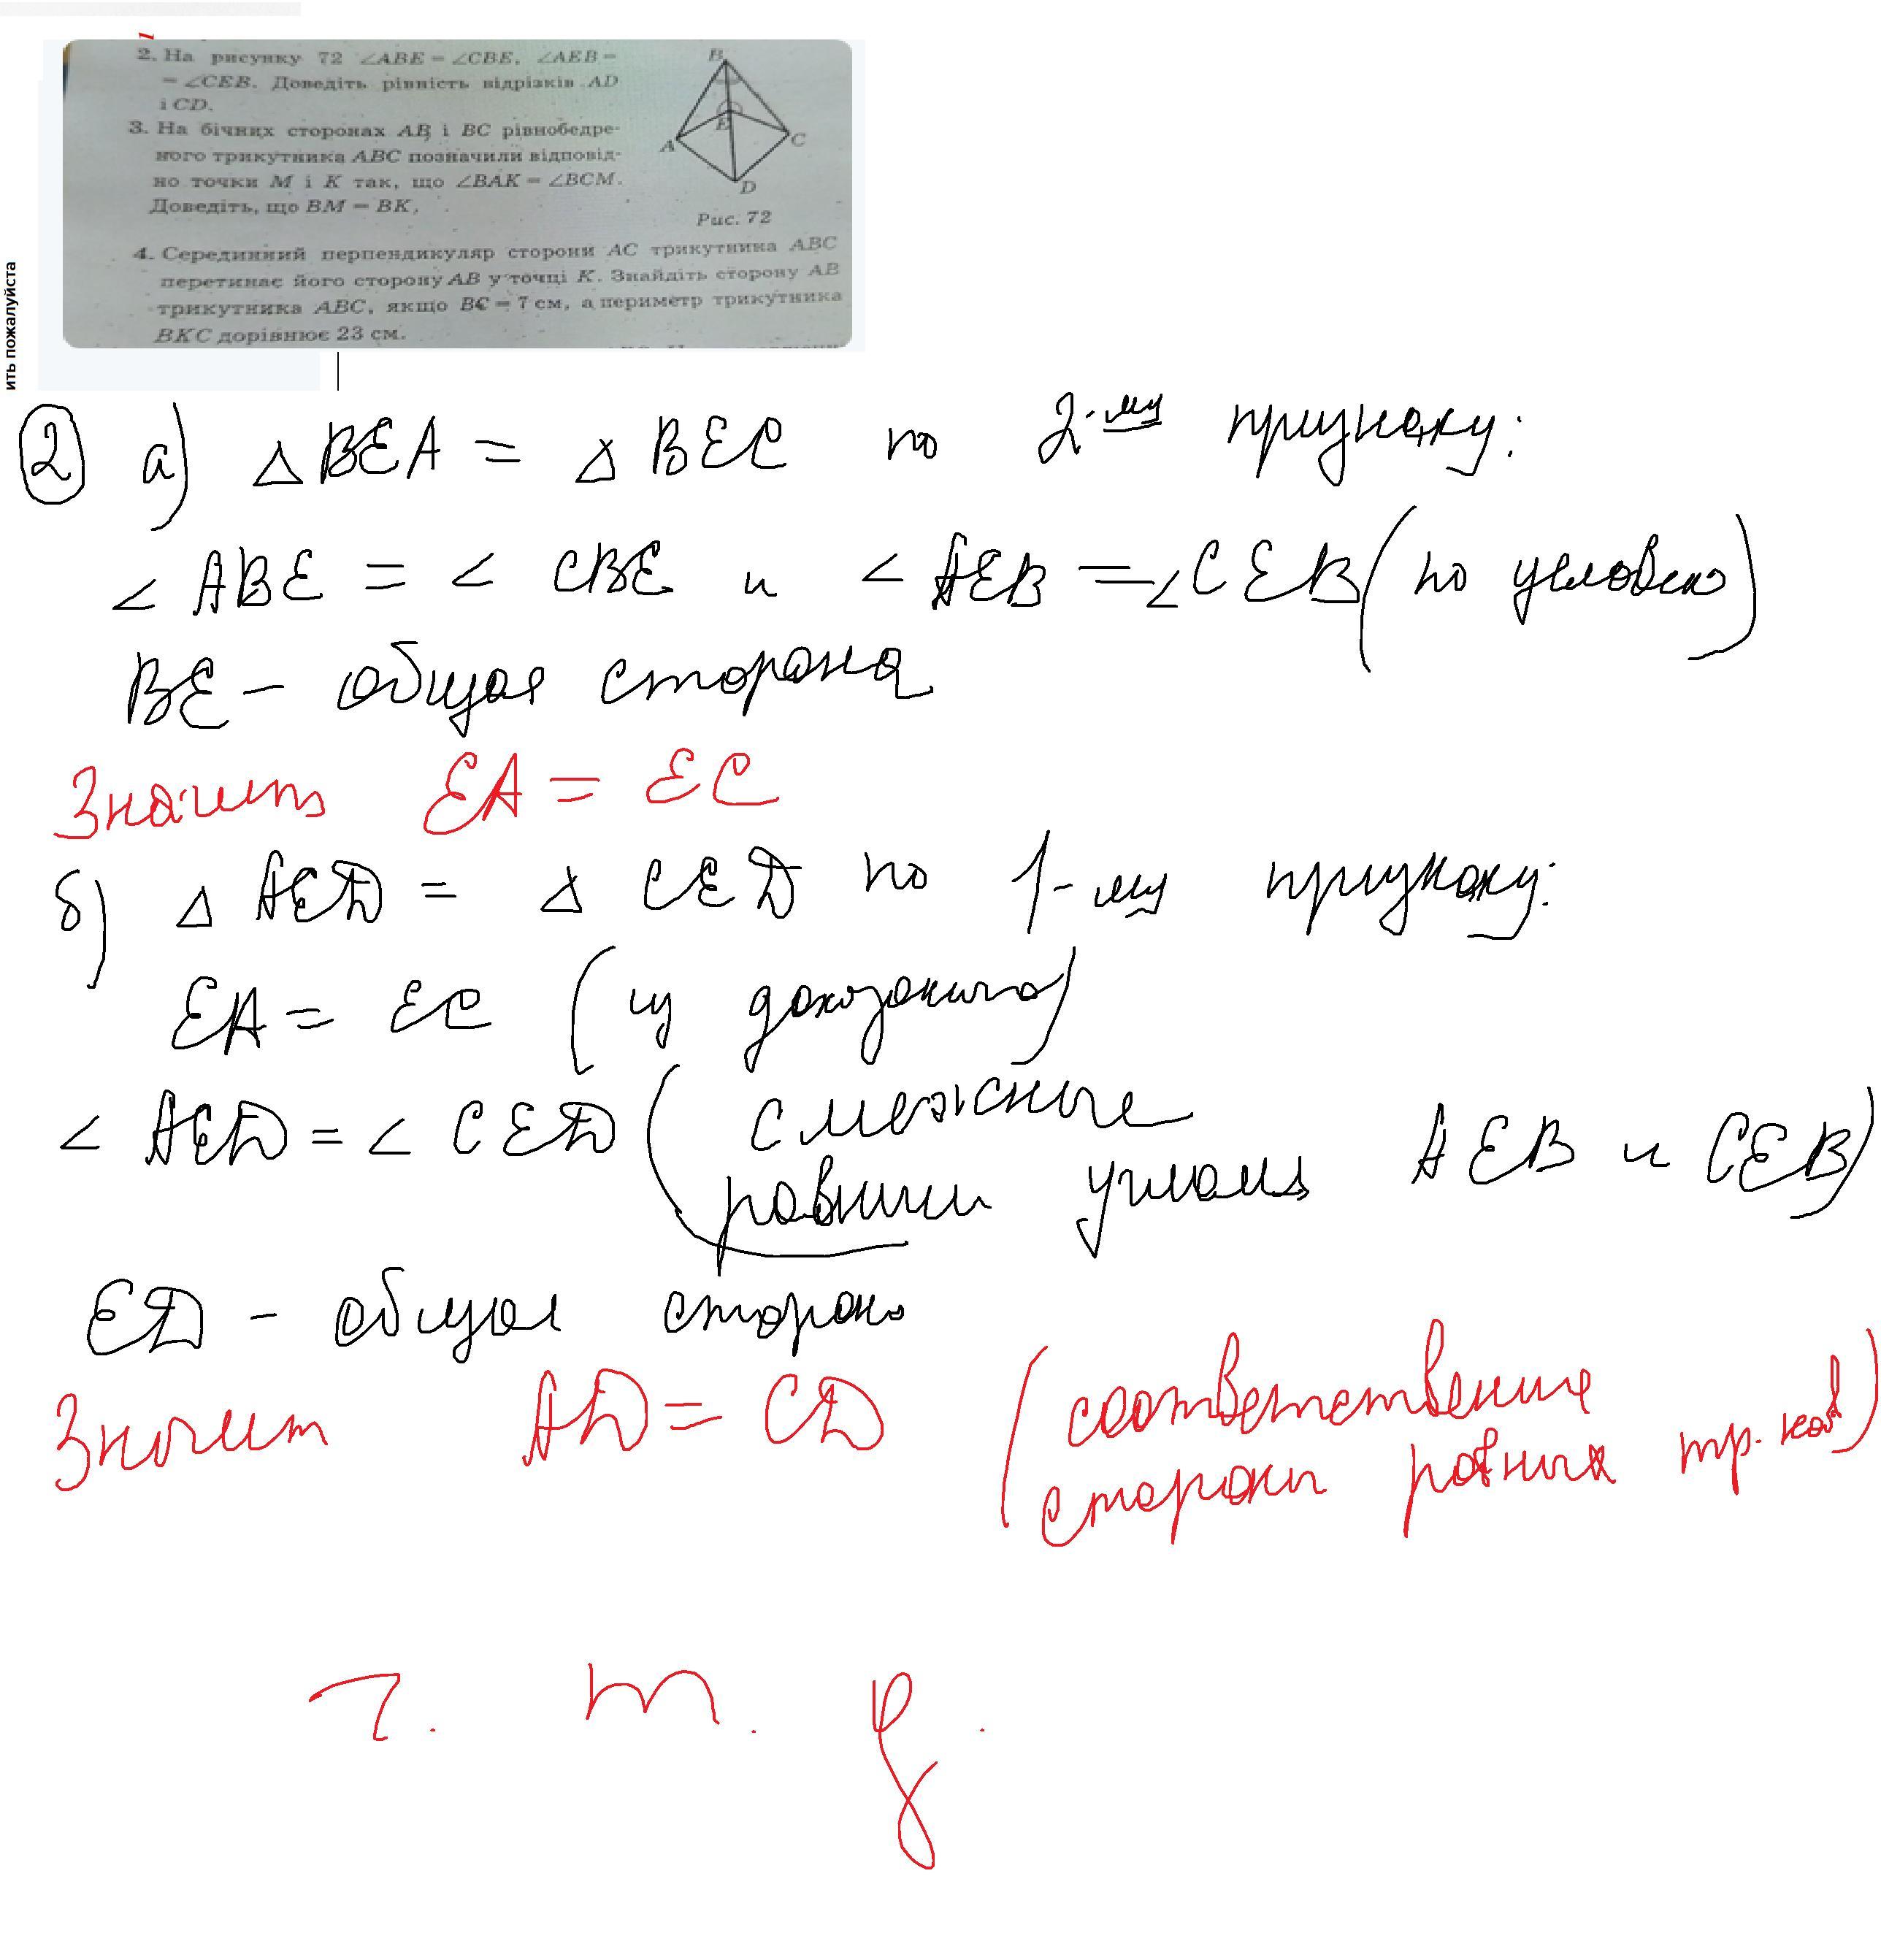 2. На рисунку 72 ∠ABE = ∠CBE, ∠AEB =
= ∠CEB. Доведіть рівність відрізків AD
і CD.
3. На бічних сторонах AB і BC рівнобедре-
ного трикутника ABC позначили відповід-
но точки M і K так, що ∠BAK = ∠BCM.
Доведіть, що BM = BK,
B
E
A
C
D
Рис. 72
4. Серединний перпендикуляр сторони AC трикутника ABC
перетинає його сторону AB у точці K. Знайдіть сторону AB
трикутника ABC, якщо BC = 7 см, а периметр трикутника
BKC дорівнює 23 см.
ить пожалуйста
2 а) △BEA = △BEC по 2-му признаку:
∠ABE = ∠CBE и ∠AEB = ∠CEB (по условию)
BE – общая сторона
Значит EA = EC
б) △AED = △CED по 1-му признаку:
EA = EC (из доказанного)
∠AED = ∠CED (смежные
равным углам AEB и CEB)
ED – общая сторона
Значит AD = CD (соответственные
стороны равных тр-ков)
ч. т. д.